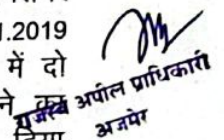 .2019
में दो
ने
राजस्व अपील प्राधिकारी
अजमेर